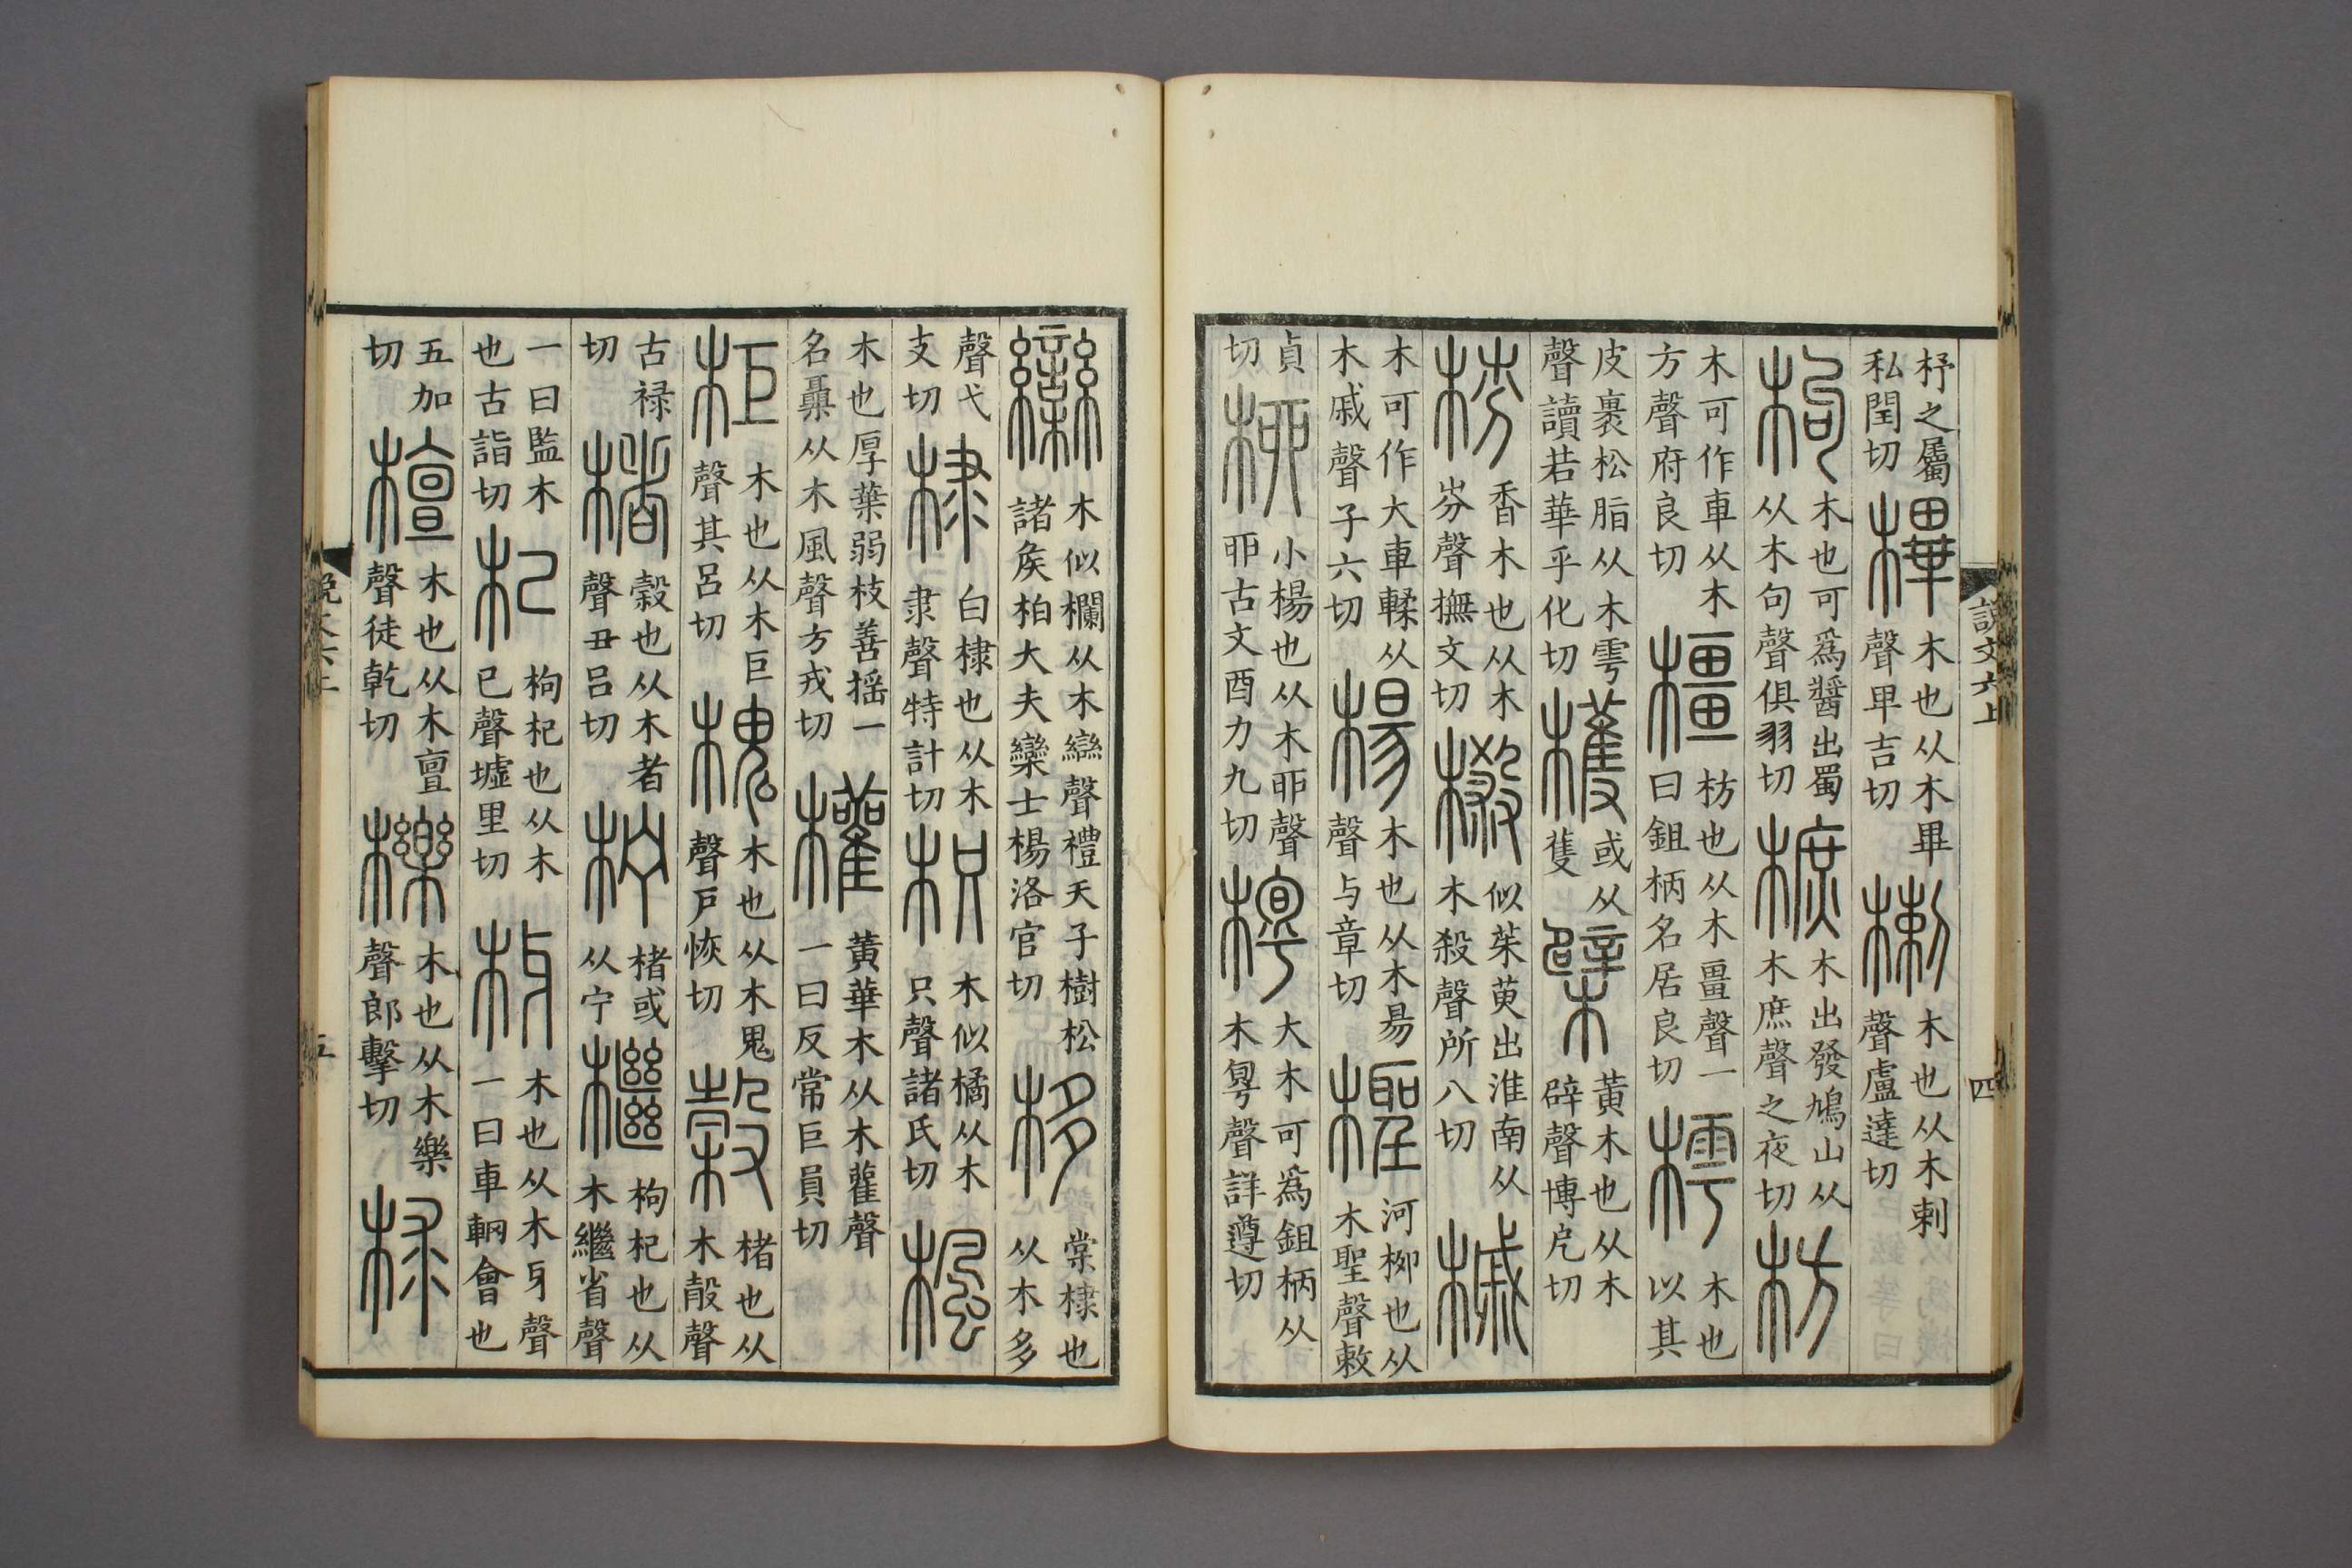 說文六上
四
杼之屬私閏切㮿木也从木畢聲卑吉切楋木也从木剌聲盧達切
枸木也可爲醬出蜀从木句聲俱羽切樜木出發鳩山从木庶聲之夜切枋
木可作車从木方聲府良切橿枋也从木畺聲一曰鉏柄名居良切樗木也以其
皮裹松脂从木雩聲讀若華乎化切檴或从蒦檗黃木也从木辟聲博戹切
梤香木也从木岎聲撫文切榝似茱萸出淮南从木殺聲所八切槭
木可作大車輮从木戚聲子六切楊木也从木昜聲与章切檉河桺也从木聖聲敕
貞切桺小楊也从木丣聲丣古文酉力九切大木可爲鉏柄从木聲詳遵切
欒木似欄从木䜌聲禮天子樹松諸矦柏大夫欒士楊洛官切栘棠棣也从木多
聲弋支切棣白棣也从木隶聲特計切枳木似橘从木只聲諸氏切楓
木也厚葉弱枝善搖一名从木風聲方戎切權黃華木从木雚聲一曰反常巨員切
柜木也从木巨聲其呂切槐木也从木鬼聲戶恢切榖楮也从木㱿聲
古禄切楮榖也从木者聲丑呂切柠楮或从宁檵枸杞也从木繼省聲
一曰監木也古詣切杞枸杞也从木己聲墟里切枒木也从木牙聲一曰車輞會也
五加切檀木也从木亶聲徒乾切櫟木也从木樂聲郎擊切梂
說文六上
五